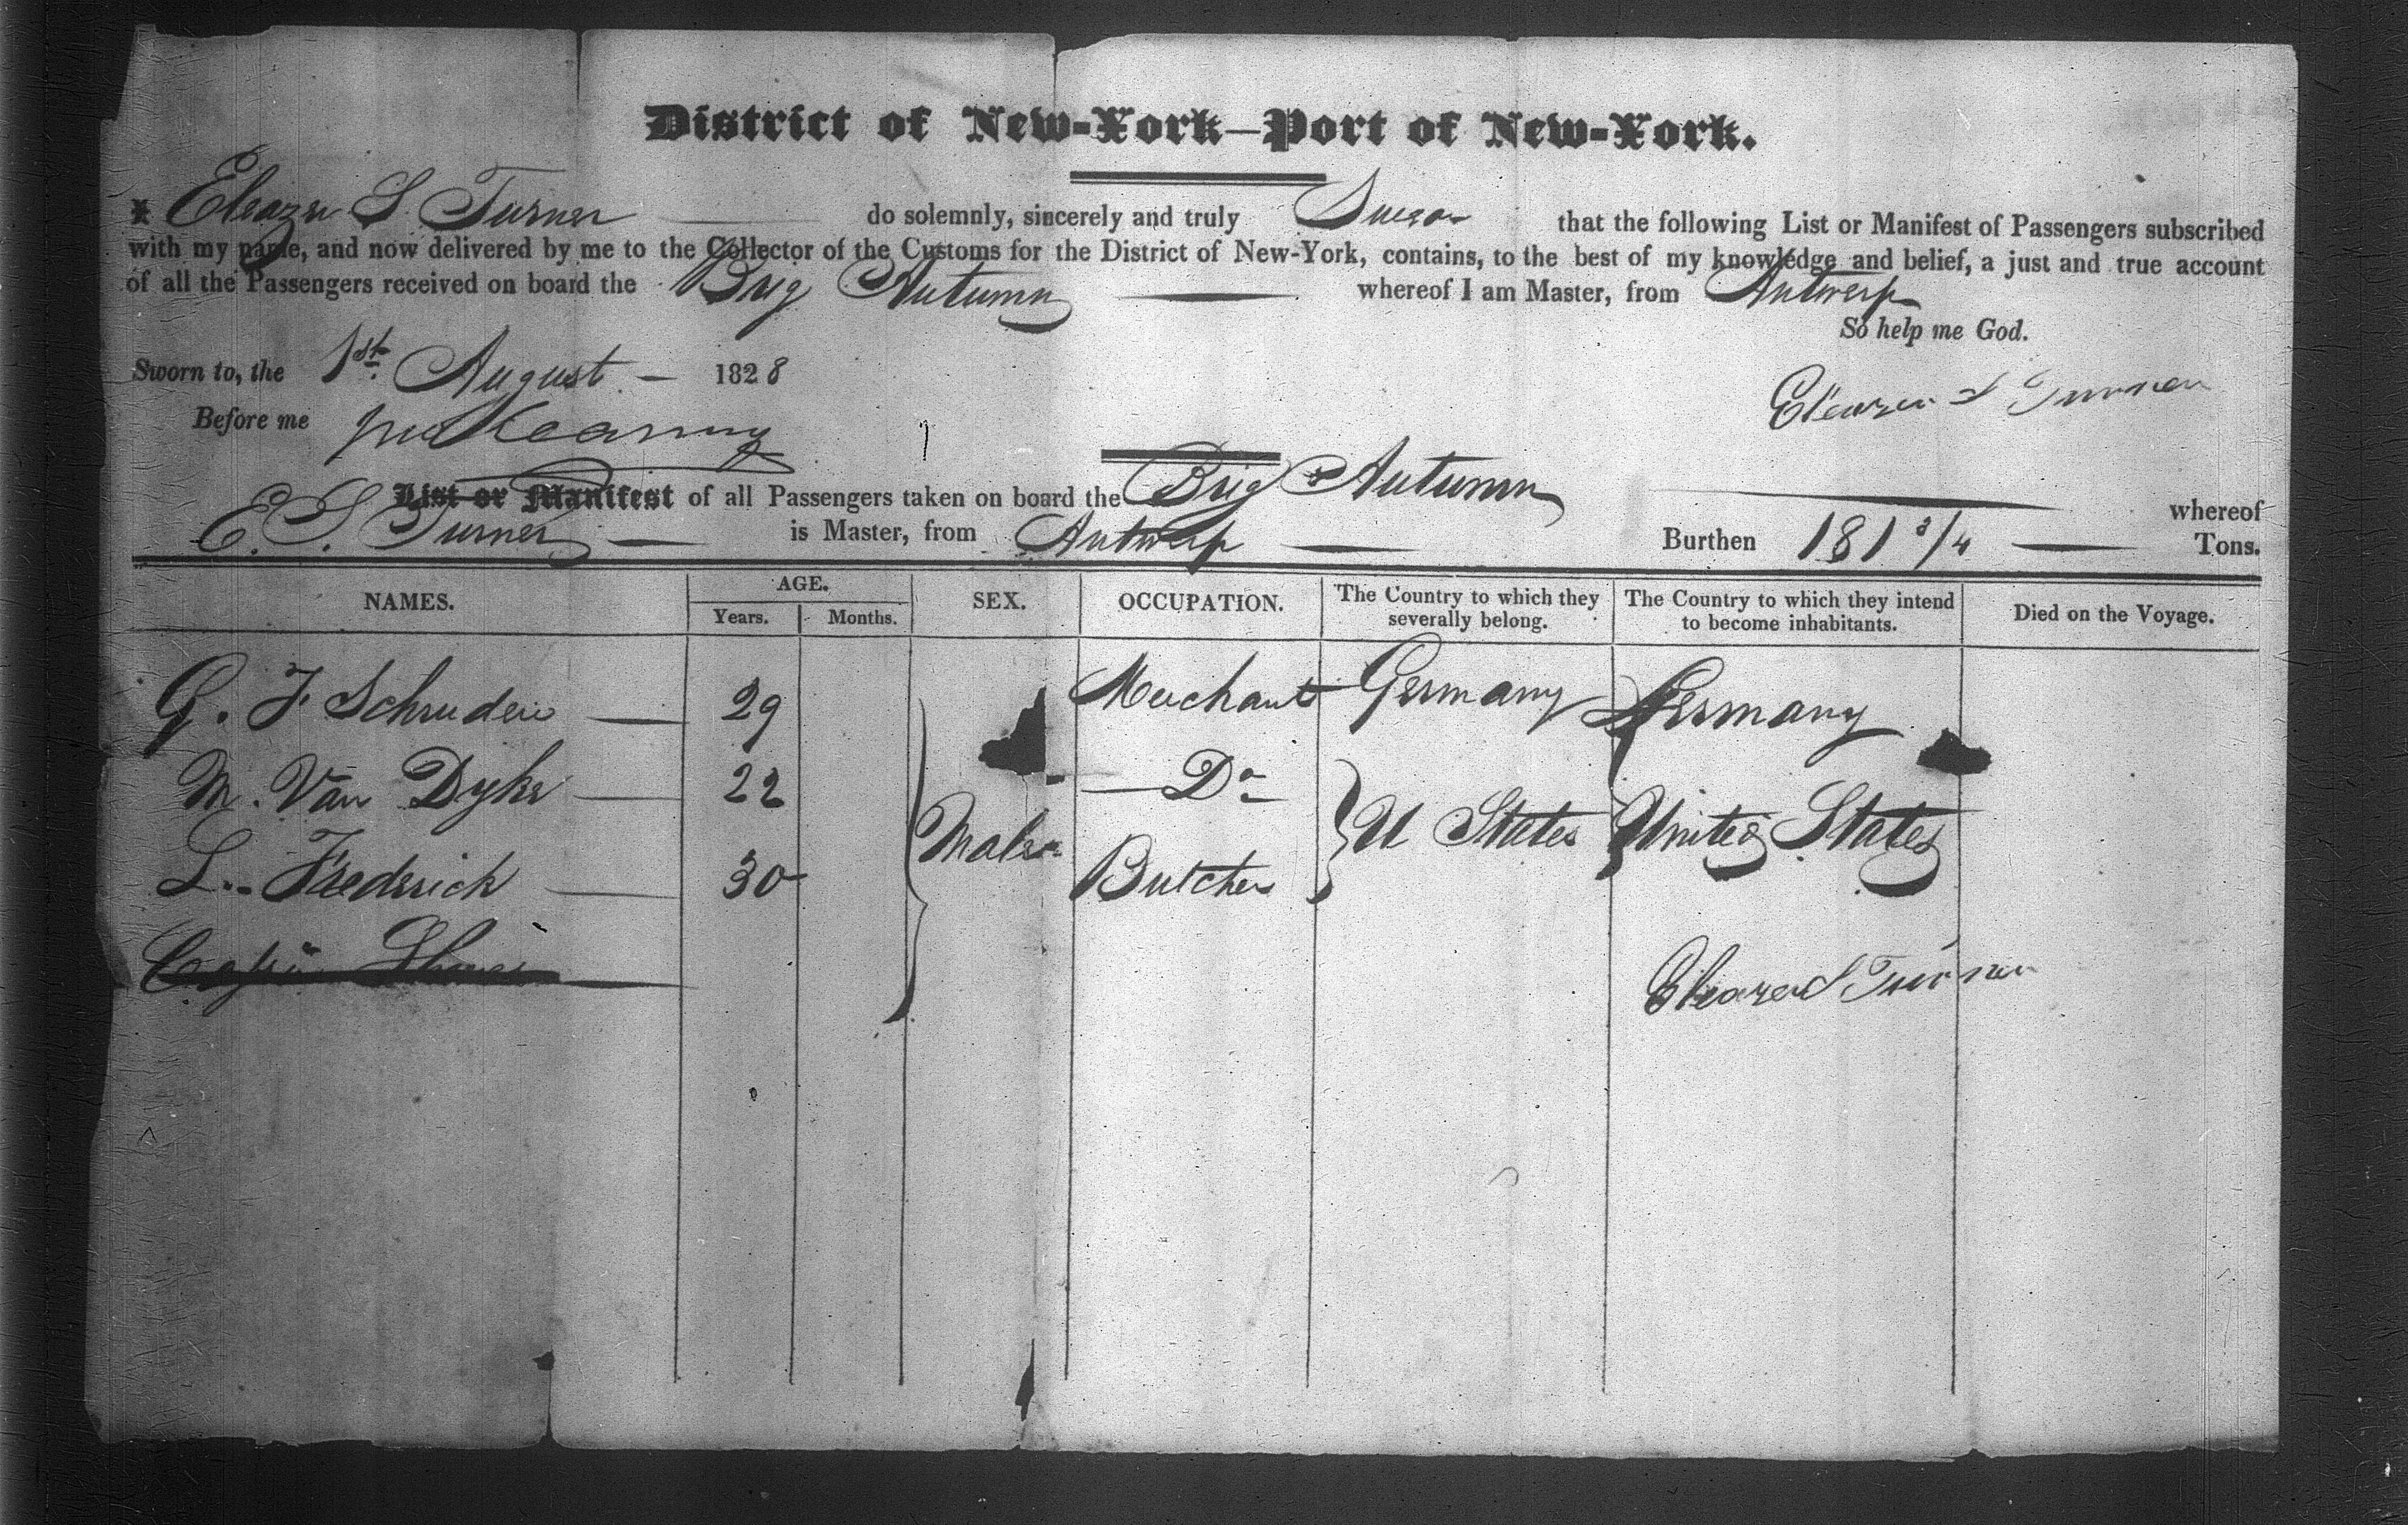 District of New-York—Port of New-York.
I Eleazer S Turner do solemnly, sincerely and truly Swear that the following List or Manifest of Passengers subscribed
with my name, and now delivered by me to the Collector of the Customs for the District of New-York, contains, to the best of my knowledge and belief, a just and true account
of all the Passengers received on board the Brig Autumn whereof I am Master, from Antwerp
So help me God.
Sworn to, the 1st August 1828
Eleazer S Turner
Before me
List or Manifest of all Passengers taken on board the Brig Autumn whereof
E. S. Turner is Master, from Antwerp Burthen 181 3/4 Tons.
NAMES. AGE. SEX. OCCUPATION. The Country to which they severally belong. The Country to which they intend to become inhabitants. Died on the Voyage.
Years. Months.
G. F Schruder 29 Merchant Germany Germany
M. Van Dyke 22 Do
Males U States United States
L. Frederick 30 Butcher
Eleazer S Turner